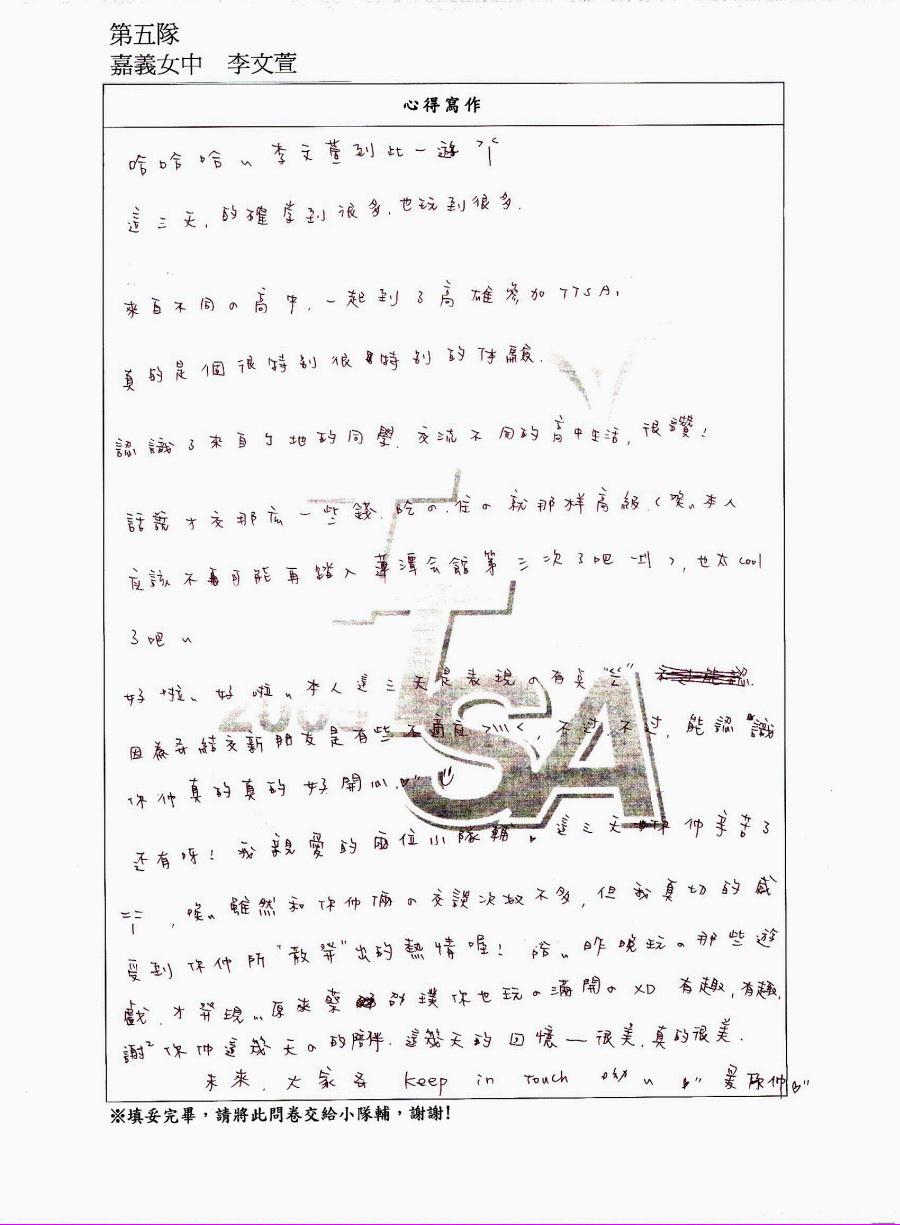 第五隊
嘉義女中 李文萱
心得寫作
哈哈哈" 李文萱到此一遊
這三天, 的確學到很多, 也玩到很多.
來自不同の高中, 一起到了高雄參加TTSA,
真的是個很特別很特別的体驗.
認識了來自各地的同學, 交流不同的高中生活, 很讚!
話說才交那広一些錢, 吃の, 住の就那样高級, (笑" 本人
應該不可能再踏入蓮潭会館第三次了吧, 也太cool
了吧"
好啦" 好啦" 本人這三天是表現の有点
因為要結交新朋友是有些不適應, 不過, 不過, 能認識
你们真的真的好開心
还有呀! 我親愛的兩位小隊輔, 這三天你们辛苦了
, 唉" 雖然和你们倆の交談次數不多, 但我真切的感
受到你们所"散發"出的熱情喔! 哈" 昨晚玩の那些遊
戲, 才發現" 原來蔡 璞你也玩の滿開の XD 有趣, 有趣,
謝² 你们這幾天の的陪伴. 這幾天的回憶—很美, 真的很美.
未來, 大家要 keep in touch 喲" 愛你们
2009
TTSA
※填妥完畢，請將此問卷交給小隊輔，謝謝!